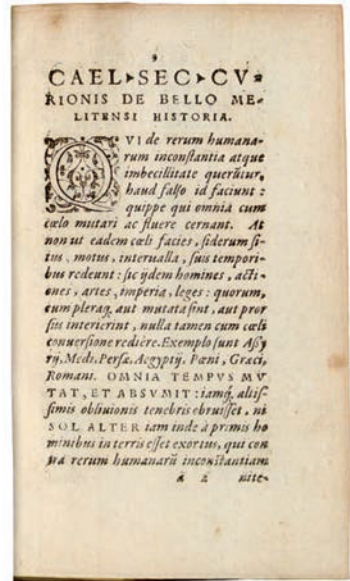 9
CAEL▸SEC▸CV⸗
RIONIS DE BELLO ME⸗
LITENSI HISTORIA.
QVI de rerum humana⸗
rum inconſtantia atque
imbecillitate querūtur,
haud falſo id faciunt :
quippe qui omnia cum
cœlo mutari ac fluere cernant. At
non ut eadem cœli facies, ſiderum ſi⸗
tus , motus, interualla , ſuis tempori⸗
bus redeunt : ſic ijdem homines , acti⸗
ones , artes , imperia, leges : quorum,
cum pleraq; aut mutata ſint , aut pror
ſus interierint , nulla tamen cum cœli
conuerſione rediêre. Exemplo ſunt Aßy
rij, Medi, Perſæ, Aegyptij, Pœni , Græci,
Romani. OMNIA TEMPVS MV
TAT, ET ABSVMIT : iamq; altiſ⸗
ſimis obliuionis tenebris obruiſſet , ni
SOL ALTER iam inde à primis ho
minibus in terris eſſet exortus, qui con
tra rerum humanarū inconſtantiam
a 2 nite⸗